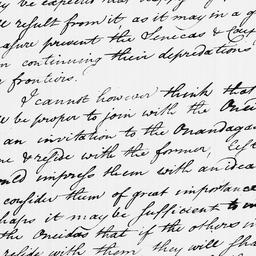 be expected
ll result from it, as it may in a g
asure prevent the Senecas & Cay
m continuing their depredations
r frontiers.
I cannot however think that
be proper to join with the Onei
an invitation to the Onandaga
me & reside with the former, lest
ould impress them with an idea
consider them of great importance
haps it may be sufficient to
the Oneidas that if the others in
reside with them they will sha